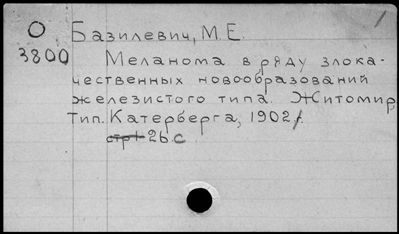 О Базилевич, М.Е.
3800 Меланома в ряду злока-
чественных новообразований
железистого типа. Житомир,
Тип. Катерберга, 1902 г.
26 с.